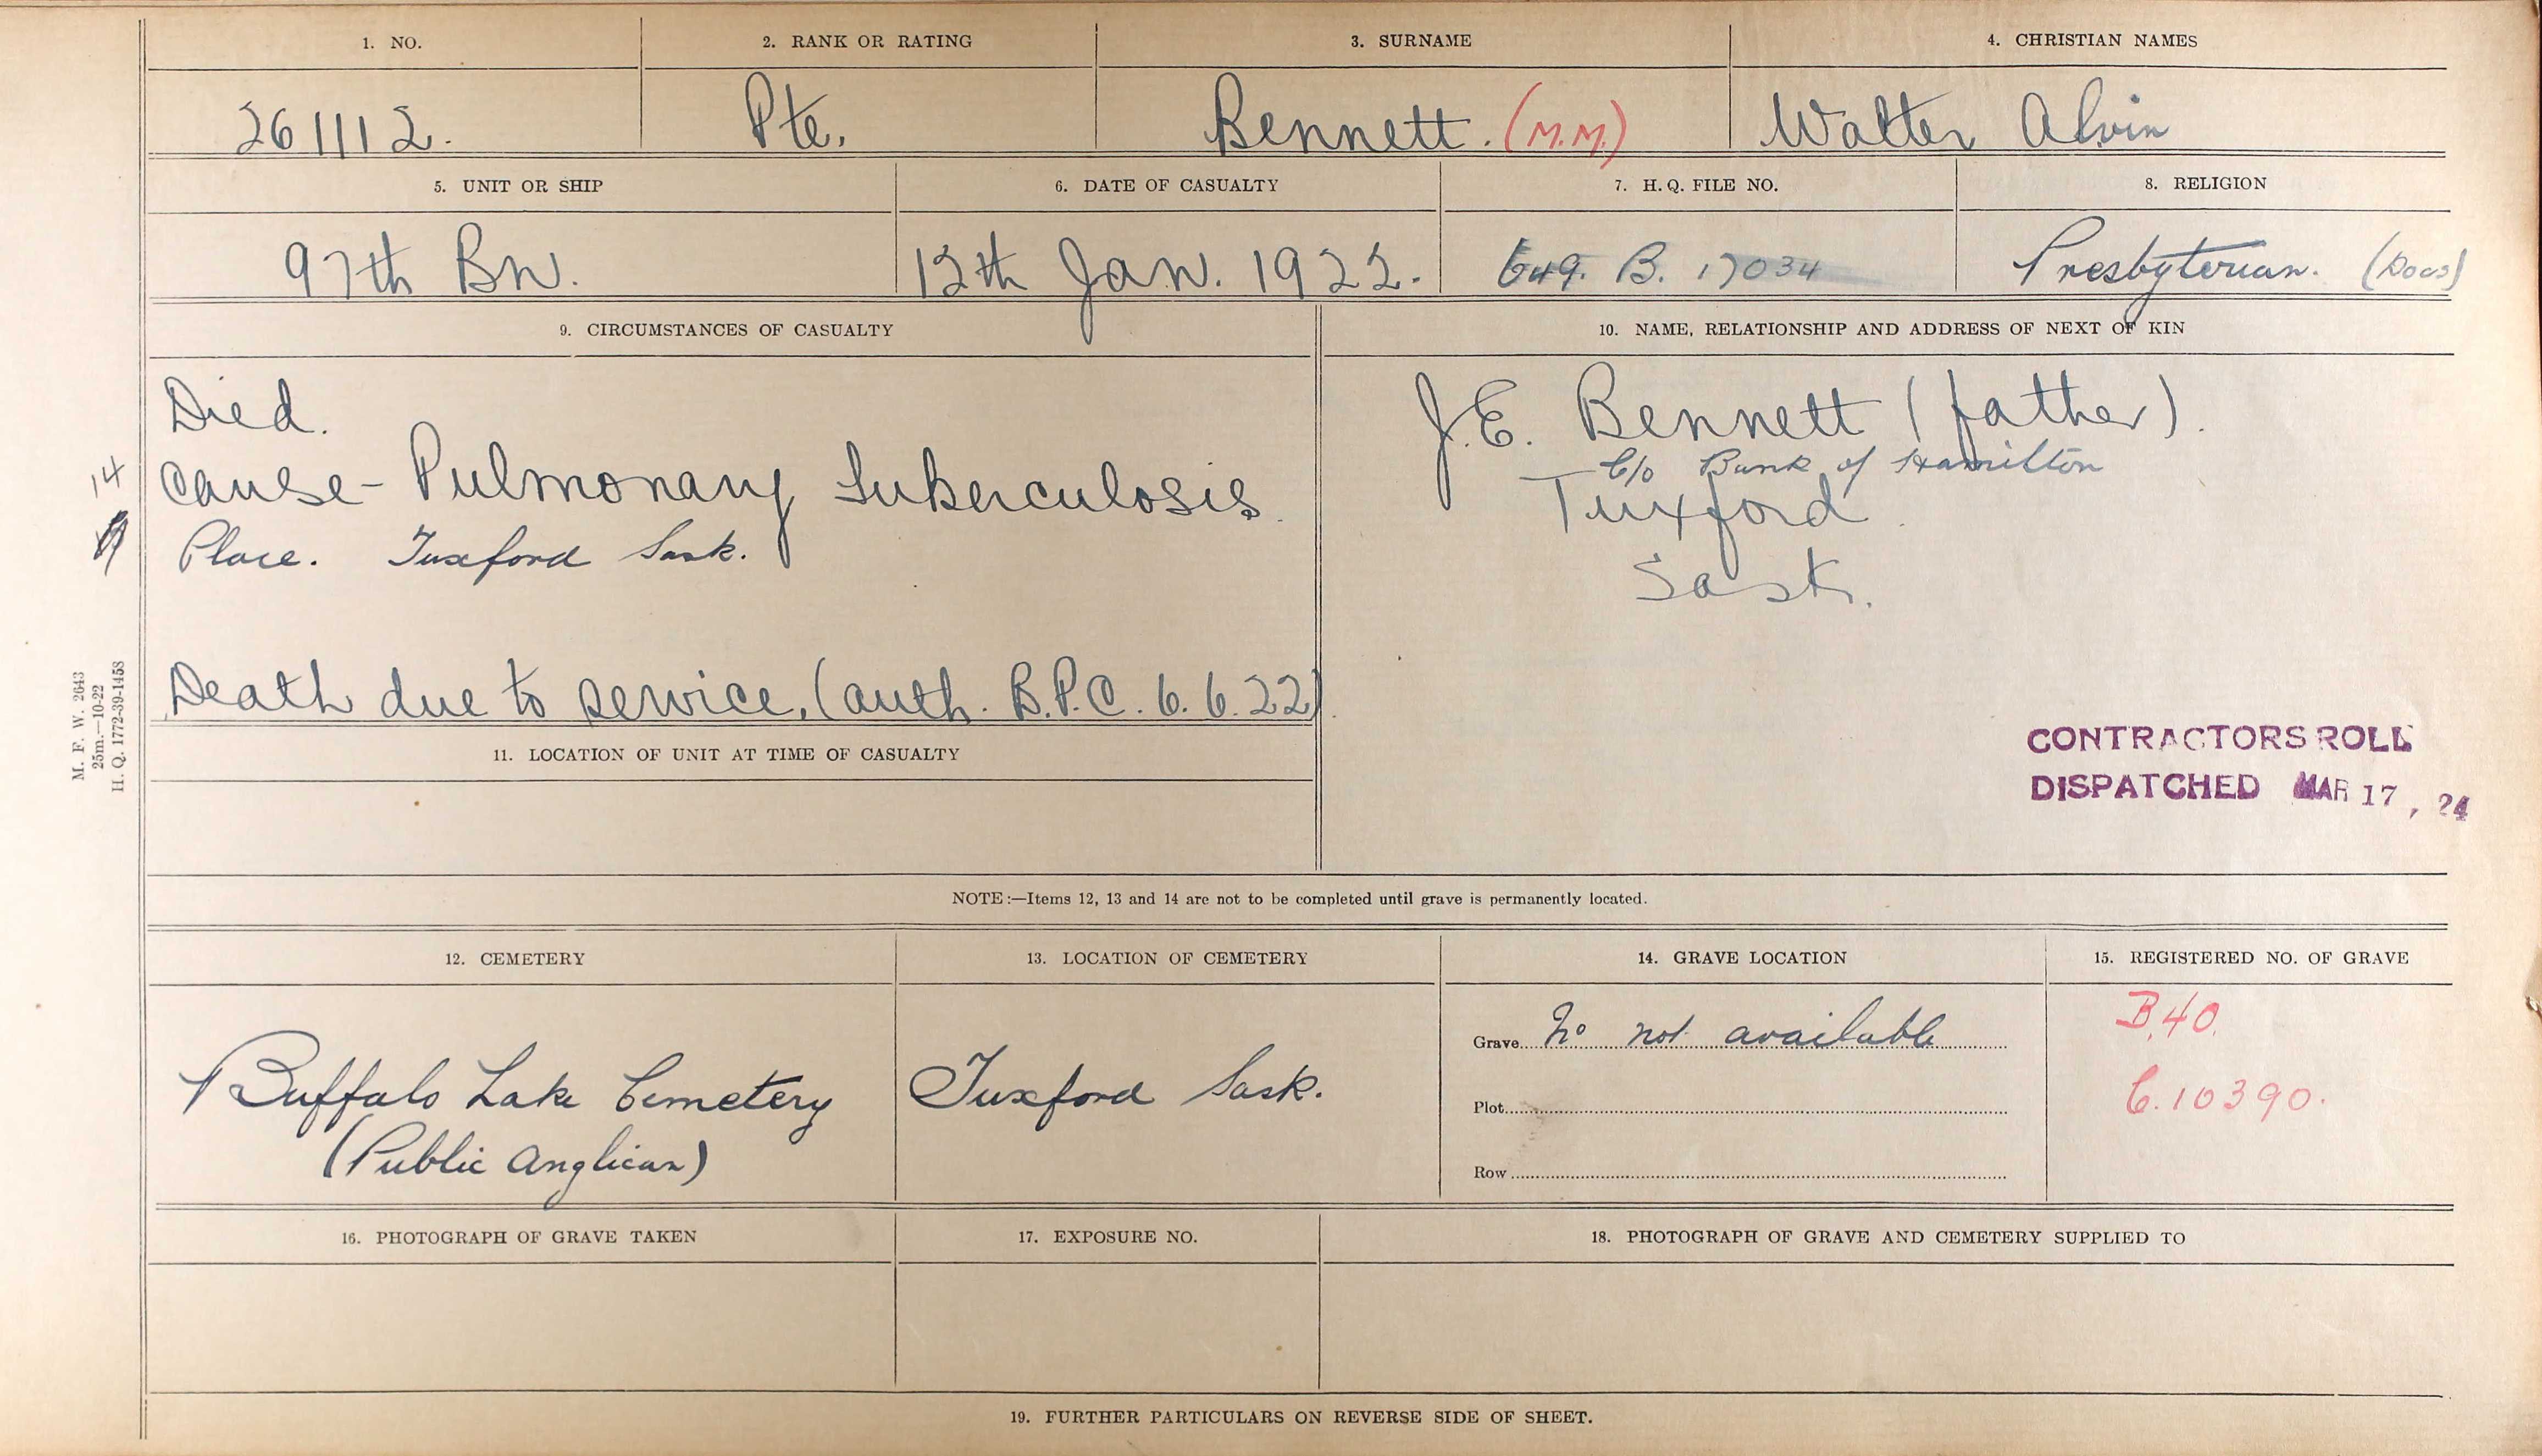 1. NO.
2. RANK OR RATING
3. SURNAME
4. CHRISTIAN NAMES
261112.
Pte.
Bennett. (M.M.)
Walter Alvin
5. UNIT OR SHIP
6. DATE OF CASUALTY
7. H.Q. FILE NO.
8. RELIGION
97th Bn.
12th Jan. 1922.
649. B. 17034
Presbyterian. (Docs)
9. CIRCUMSTANCES OF CASUALTY
Died.
Cause - Pulmonary Tuberculosis.
Place. Tuxford Sask.
Death due to service. (auth. B.P.C. 6.6.22)
14
10. NAME, RELATIONSHIP AND ADDRESS OF NEXT OF KIN
J.E. Bennett (father).
C/o Bank of Hamilton
Tuxford
Sask.
CONTRACTORS ROLL
DISPATCHED MAR 17, 24
M. F. W. 2643
25m.—10-22
H. Q. 1772-39-1458
11. LOCATION OF UNIT AT TIME OF CASUALTY
NOTE:—Items 12, 13 and 14 are not to be completed until grave is permanently located.
12. CEMETERY
13. LOCATION OF CEMETERY
14. GRAVE LOCATION
15. REGISTERED NO. OF GRAVE
Buffalo Lake Cemetery
(Public Anglican)
Tuxford Sask.
Grave No not available
Plot
Row
B.40.
C.10390.
16. PHOTOGRAPH OF GRAVE TAKEN
17. EXPOSURE NO.
18. PHOTOGRAPH OF GRAVE AND CEMETERY SUPPLIED TO
19. FURTHER PARTICULARS ON REVERSE SIDE OF SHEET.